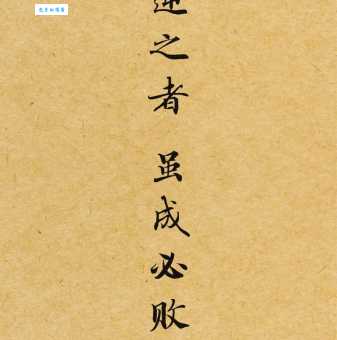 逆之者 虽成必败